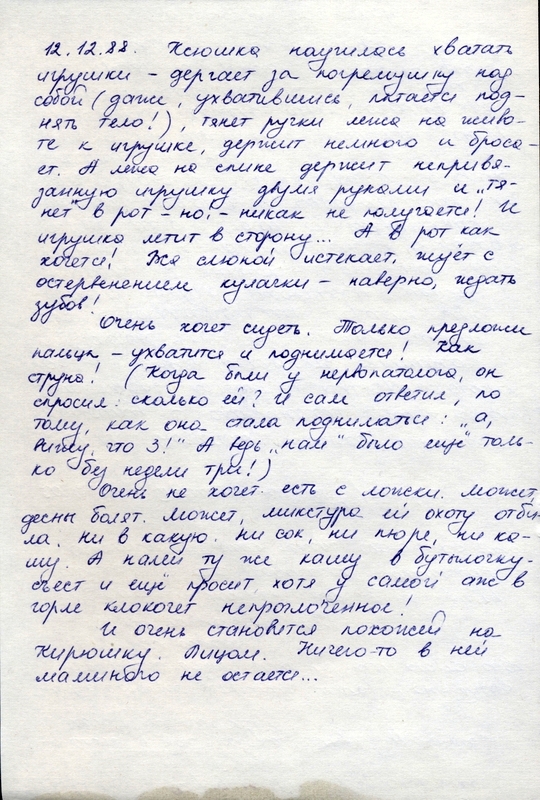 12.12.88. Ксюшка научилась хватать
игрушки – дергает за погремушку над
собой (даже, ухватившись, пытается под-
нять тело!), тянет ручки лежа на живо-
те к игрушке, держит немного и броса-
ет. А лежа на спине держит непривя-
занную игрушку двумя руками и „тя-
нет" в рот – но – никак не получается! И
игрушка летит в сторону... А в рот как
хочется! Вся слюной истекает, жуёт с
остервенением кулачки – наверно, ждать
зубов!
Очень хочет сидеть. Только предложи
пальцы – ухватится и поднимается! Как
струна! (Когда были у невропатолога, он
спросил: сколько ей? И сам ответил, по
тому, как она стала подниматься: „а,
вижу, что 3!" А ведь „нам" было ещё толь-
ко без недели три!)
Очень не хочет есть с ложки. Может,
десны болят. Может, микстура ей охоту отби-
ла. Ни в какую. Ни сок, ни пюре, ни ка-
шу. А налей ту же кашу в бутылочку –
съест и ещё просит, хотя у самой аж в
горле клокочет непроглоченное!
И очень становится похожей на
Кирюшку. Лицом. Ничего-то в ней
маминого не остается...